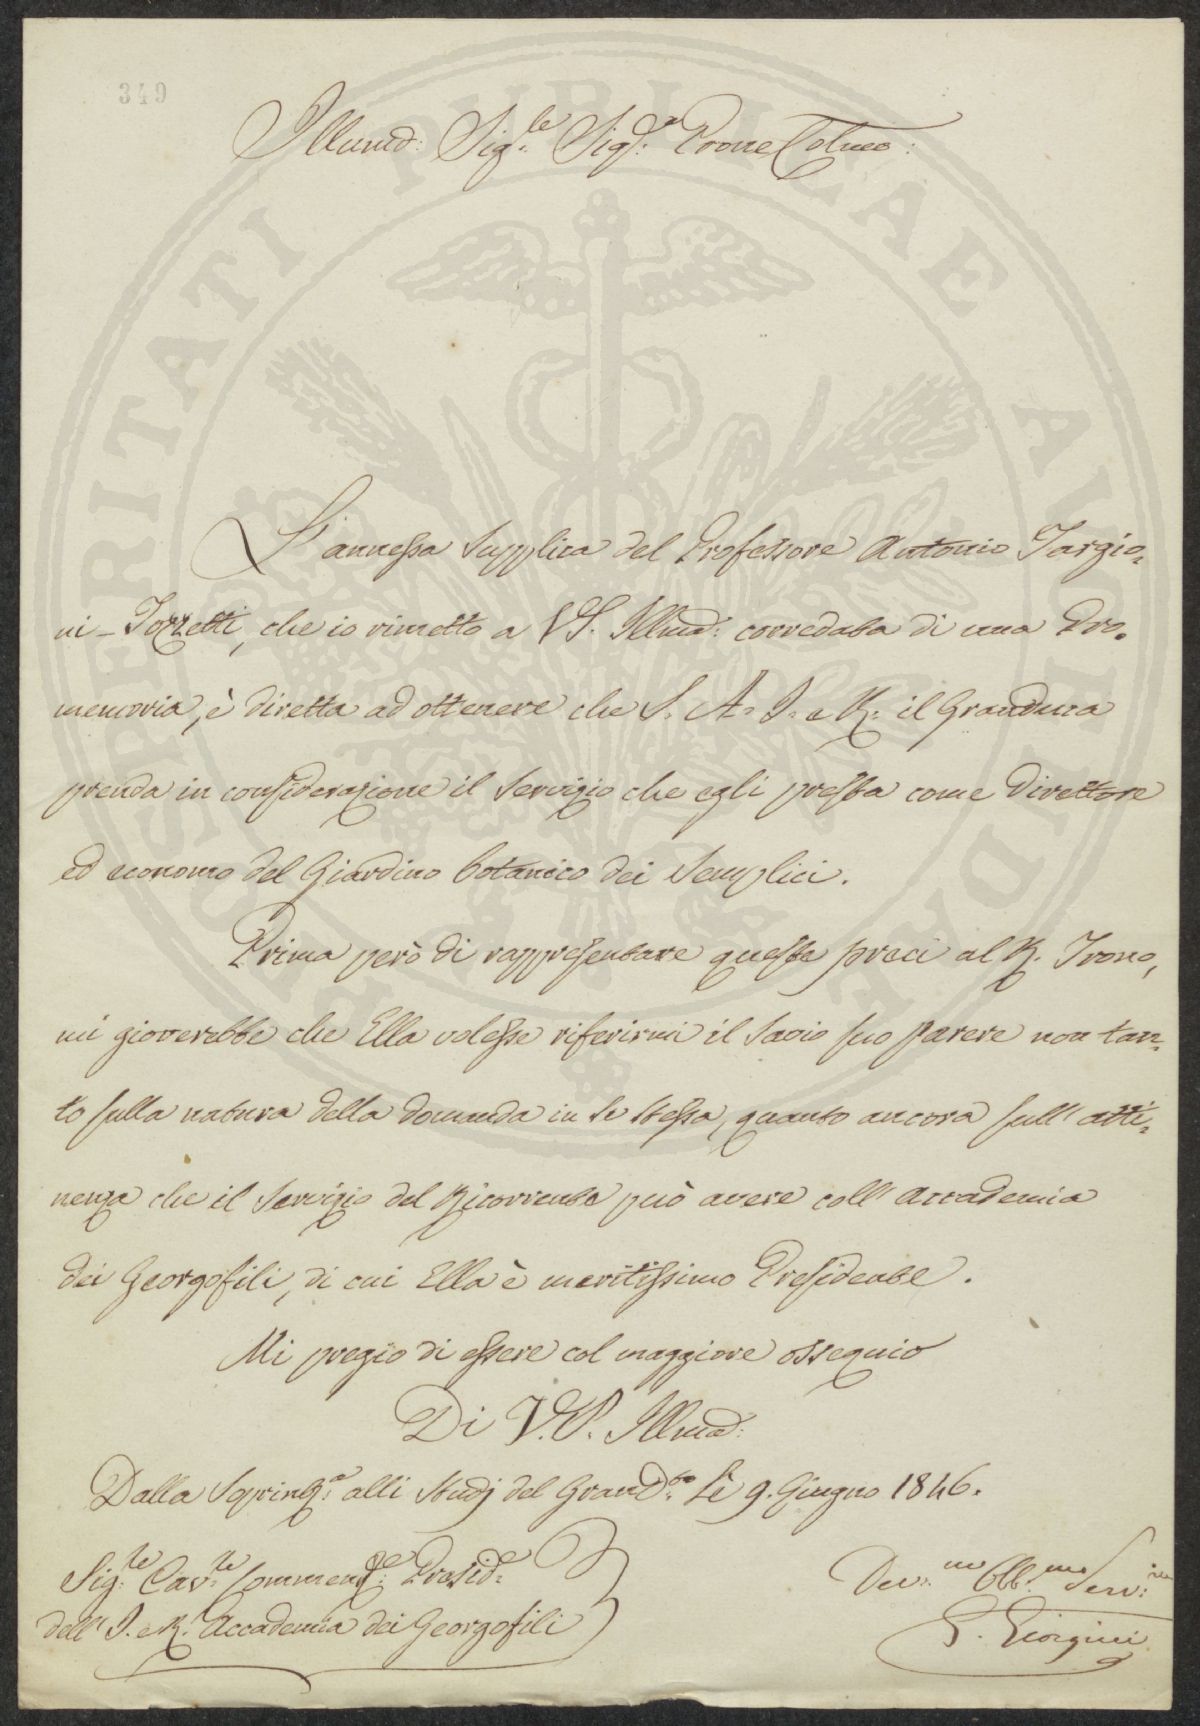 349
PROSPERITATI PUBLICAE AUGENDAE
Illumõ: Sig.re Sig.r Prone Colmo:
L'annessa supplica del Professore Antonio Targio-
ni-Tozzetti, che io rimetto a VS. Illmã: corredata di una Pro-
memoria, è diretta ad ottenere che S. A. I. e R. il Granduca
prenda in considerazione il servizio che egli presta come Direttore
ed economo del Giardino botanico dei Semplici.
Prima però di rappresentare queste preci al R. Trono,
mi gioverebbe che Ella volesse riferirmi il savio suo parere non tan-
to sulla natura della domanda in se stessa, quanto ancora sull'atti-
nenza che il servizio del Ricorrente può avere coll'Accademia
dei Georgofili, di cui Ella è meritissimo Presidente.
Mi pregio di essere col maggiore ossequio
Di V.S. Illmã:
Dalla Soprin.za alli Studj del Grand.to Lì 9. Giugno 1846.
Sig.re Cav.re Commend.e Presid.e
dell'I. e R. Accademia dei Georgofili
Dev.mo Obb.mo Serv.re
G. Giorgini